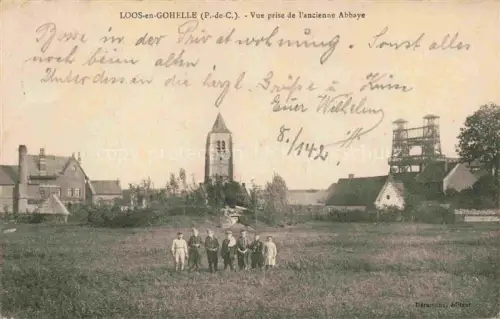 LOOS-en-GOHELLE (P.-de-C.). - Vue prise de l'ancienne Abbaye
in der Privatwohnung. Sonst alles
noch beim alten
Unterdessen die herzl. Grüße u. Küsse
Euer Wilhelm
Delarenne, éditeur